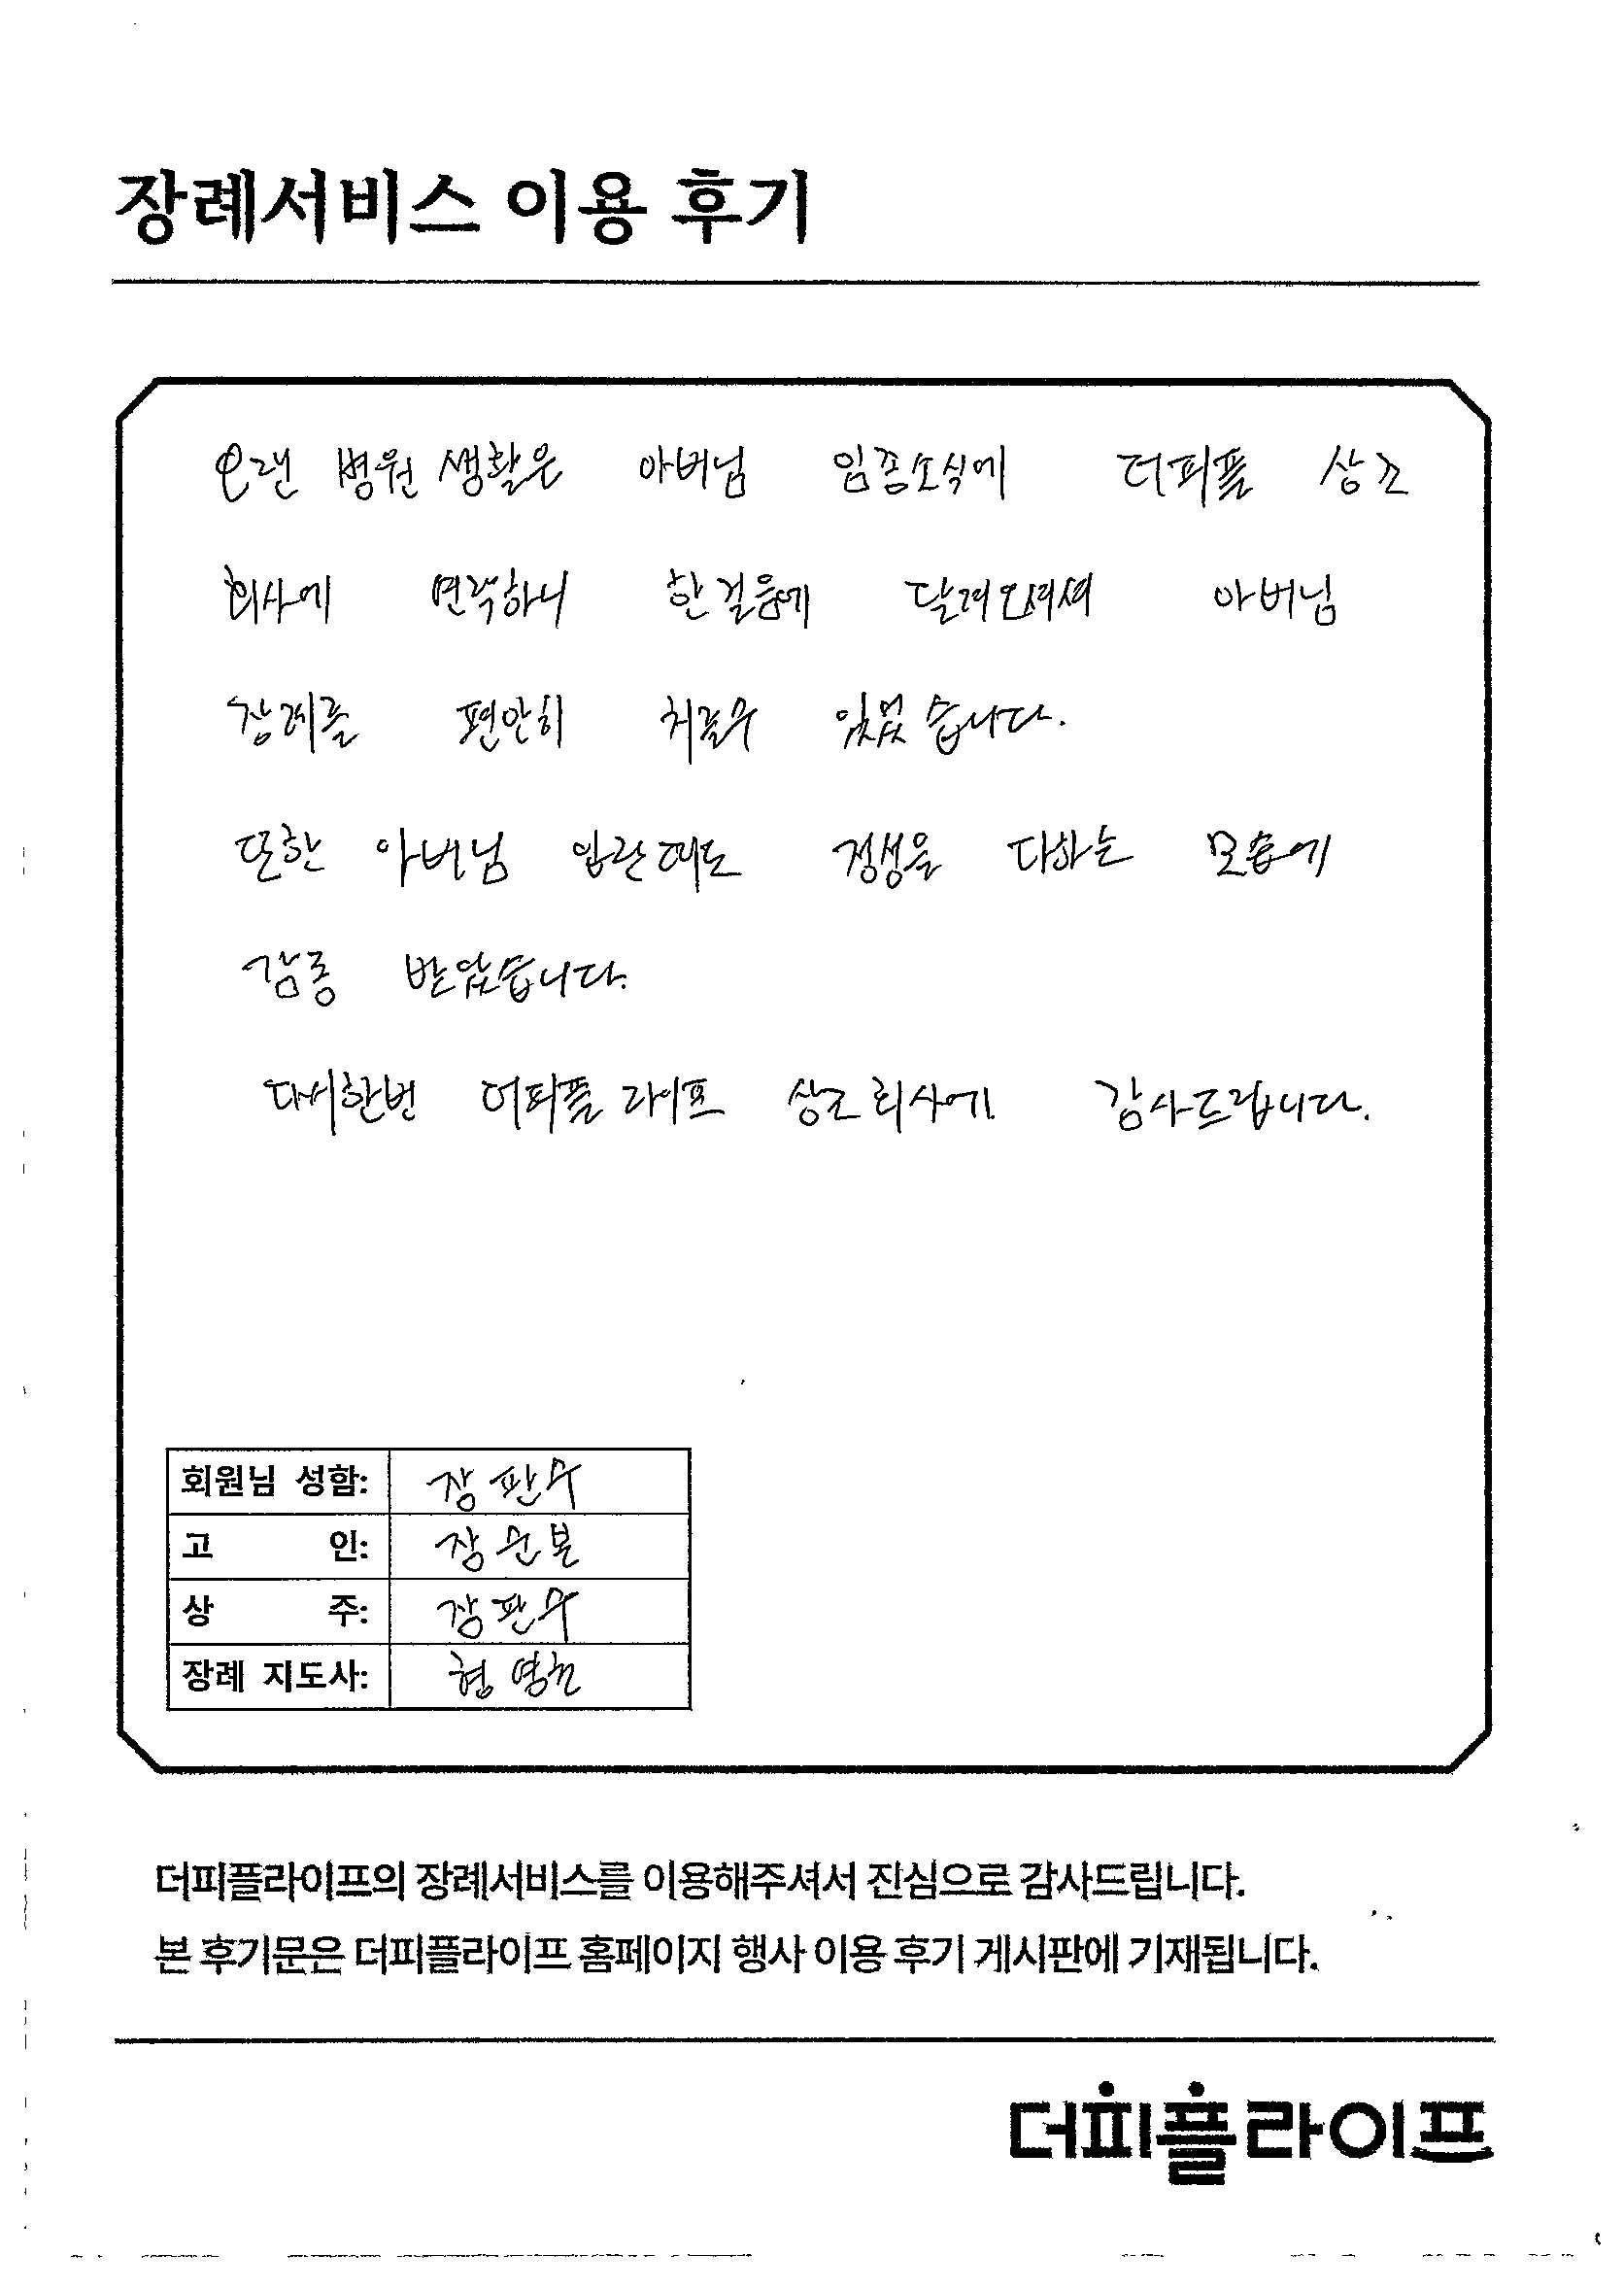 장례서비스 이용 후기
오랜 병원 생활은 아버님 임종소식에 더피플 상조
회사에 연락하니 한걸음에 달려오셔셔 아버님
장례를 편안히 치를수 있었습니다.
또한 아버님 입관때도 정성을 다하는 모습에
감동 받았습니다.
다시한번 더피플 라이프 상조회사에 감사드립니다.
회원님 성함: 장판수
고 인: 장순볼
상 주: 장판수
장례 지도사:
더피플라이프의 장례서비스를 이용해주셔서 진심으로 감사드립니다.
본 후기문은 더피플라이프 홈페이지 행사 이용 후기 게시판에 기재됩니다.
더피플라이프